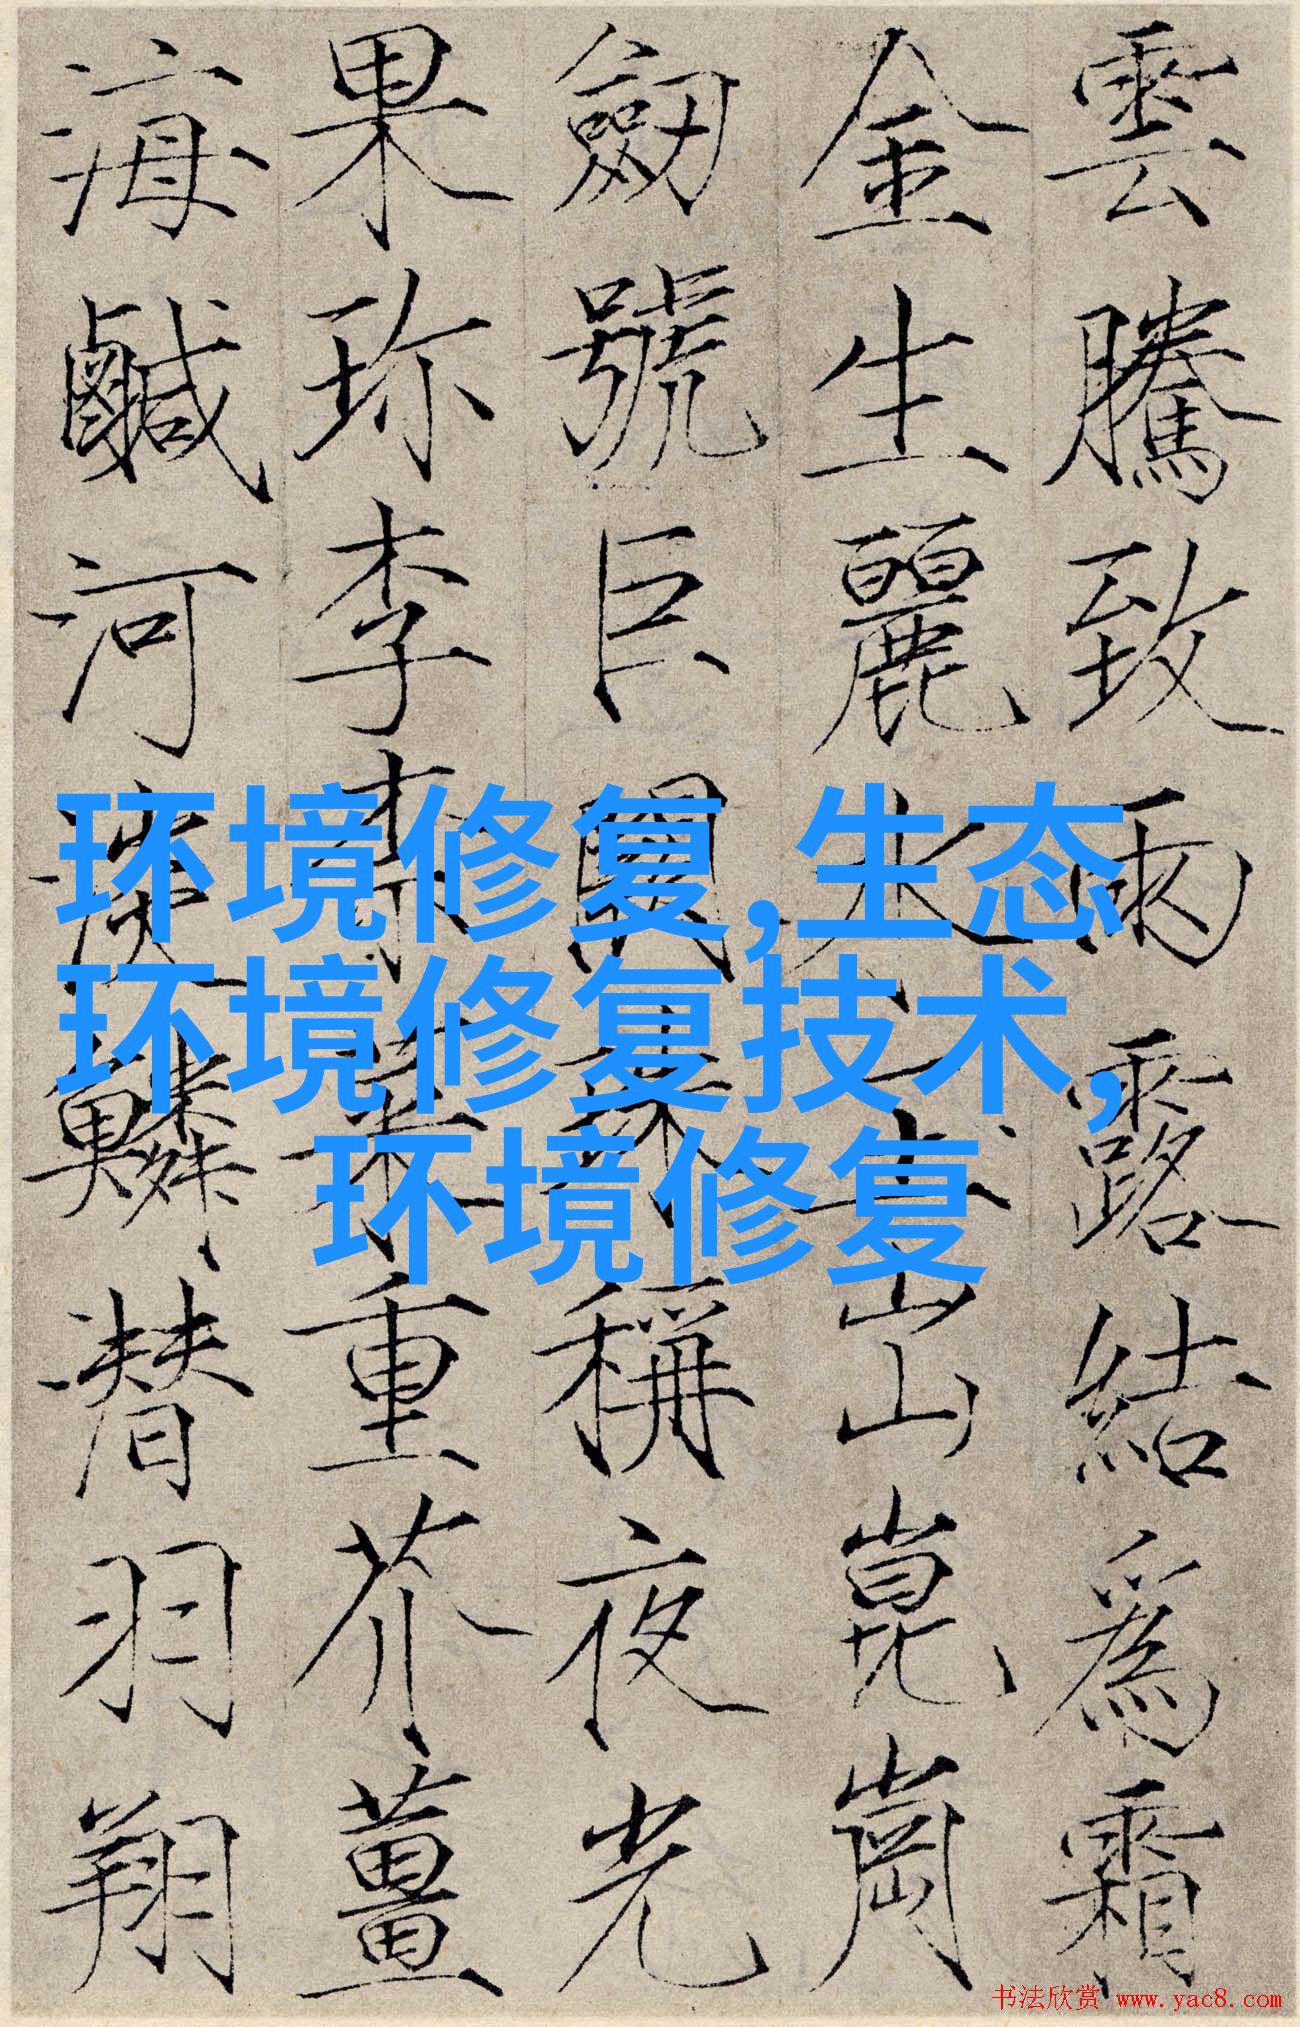 雲騰致雨露結爲霜
金生麗水玉出崑崗
劒號巨闕珠稱夜光
果珎李柰菜重芥薑
海鹹河淡鱗潜羽翔
环境修复,生态
环境修复技术,
环境修复
书法欣赏 www.yac8.com